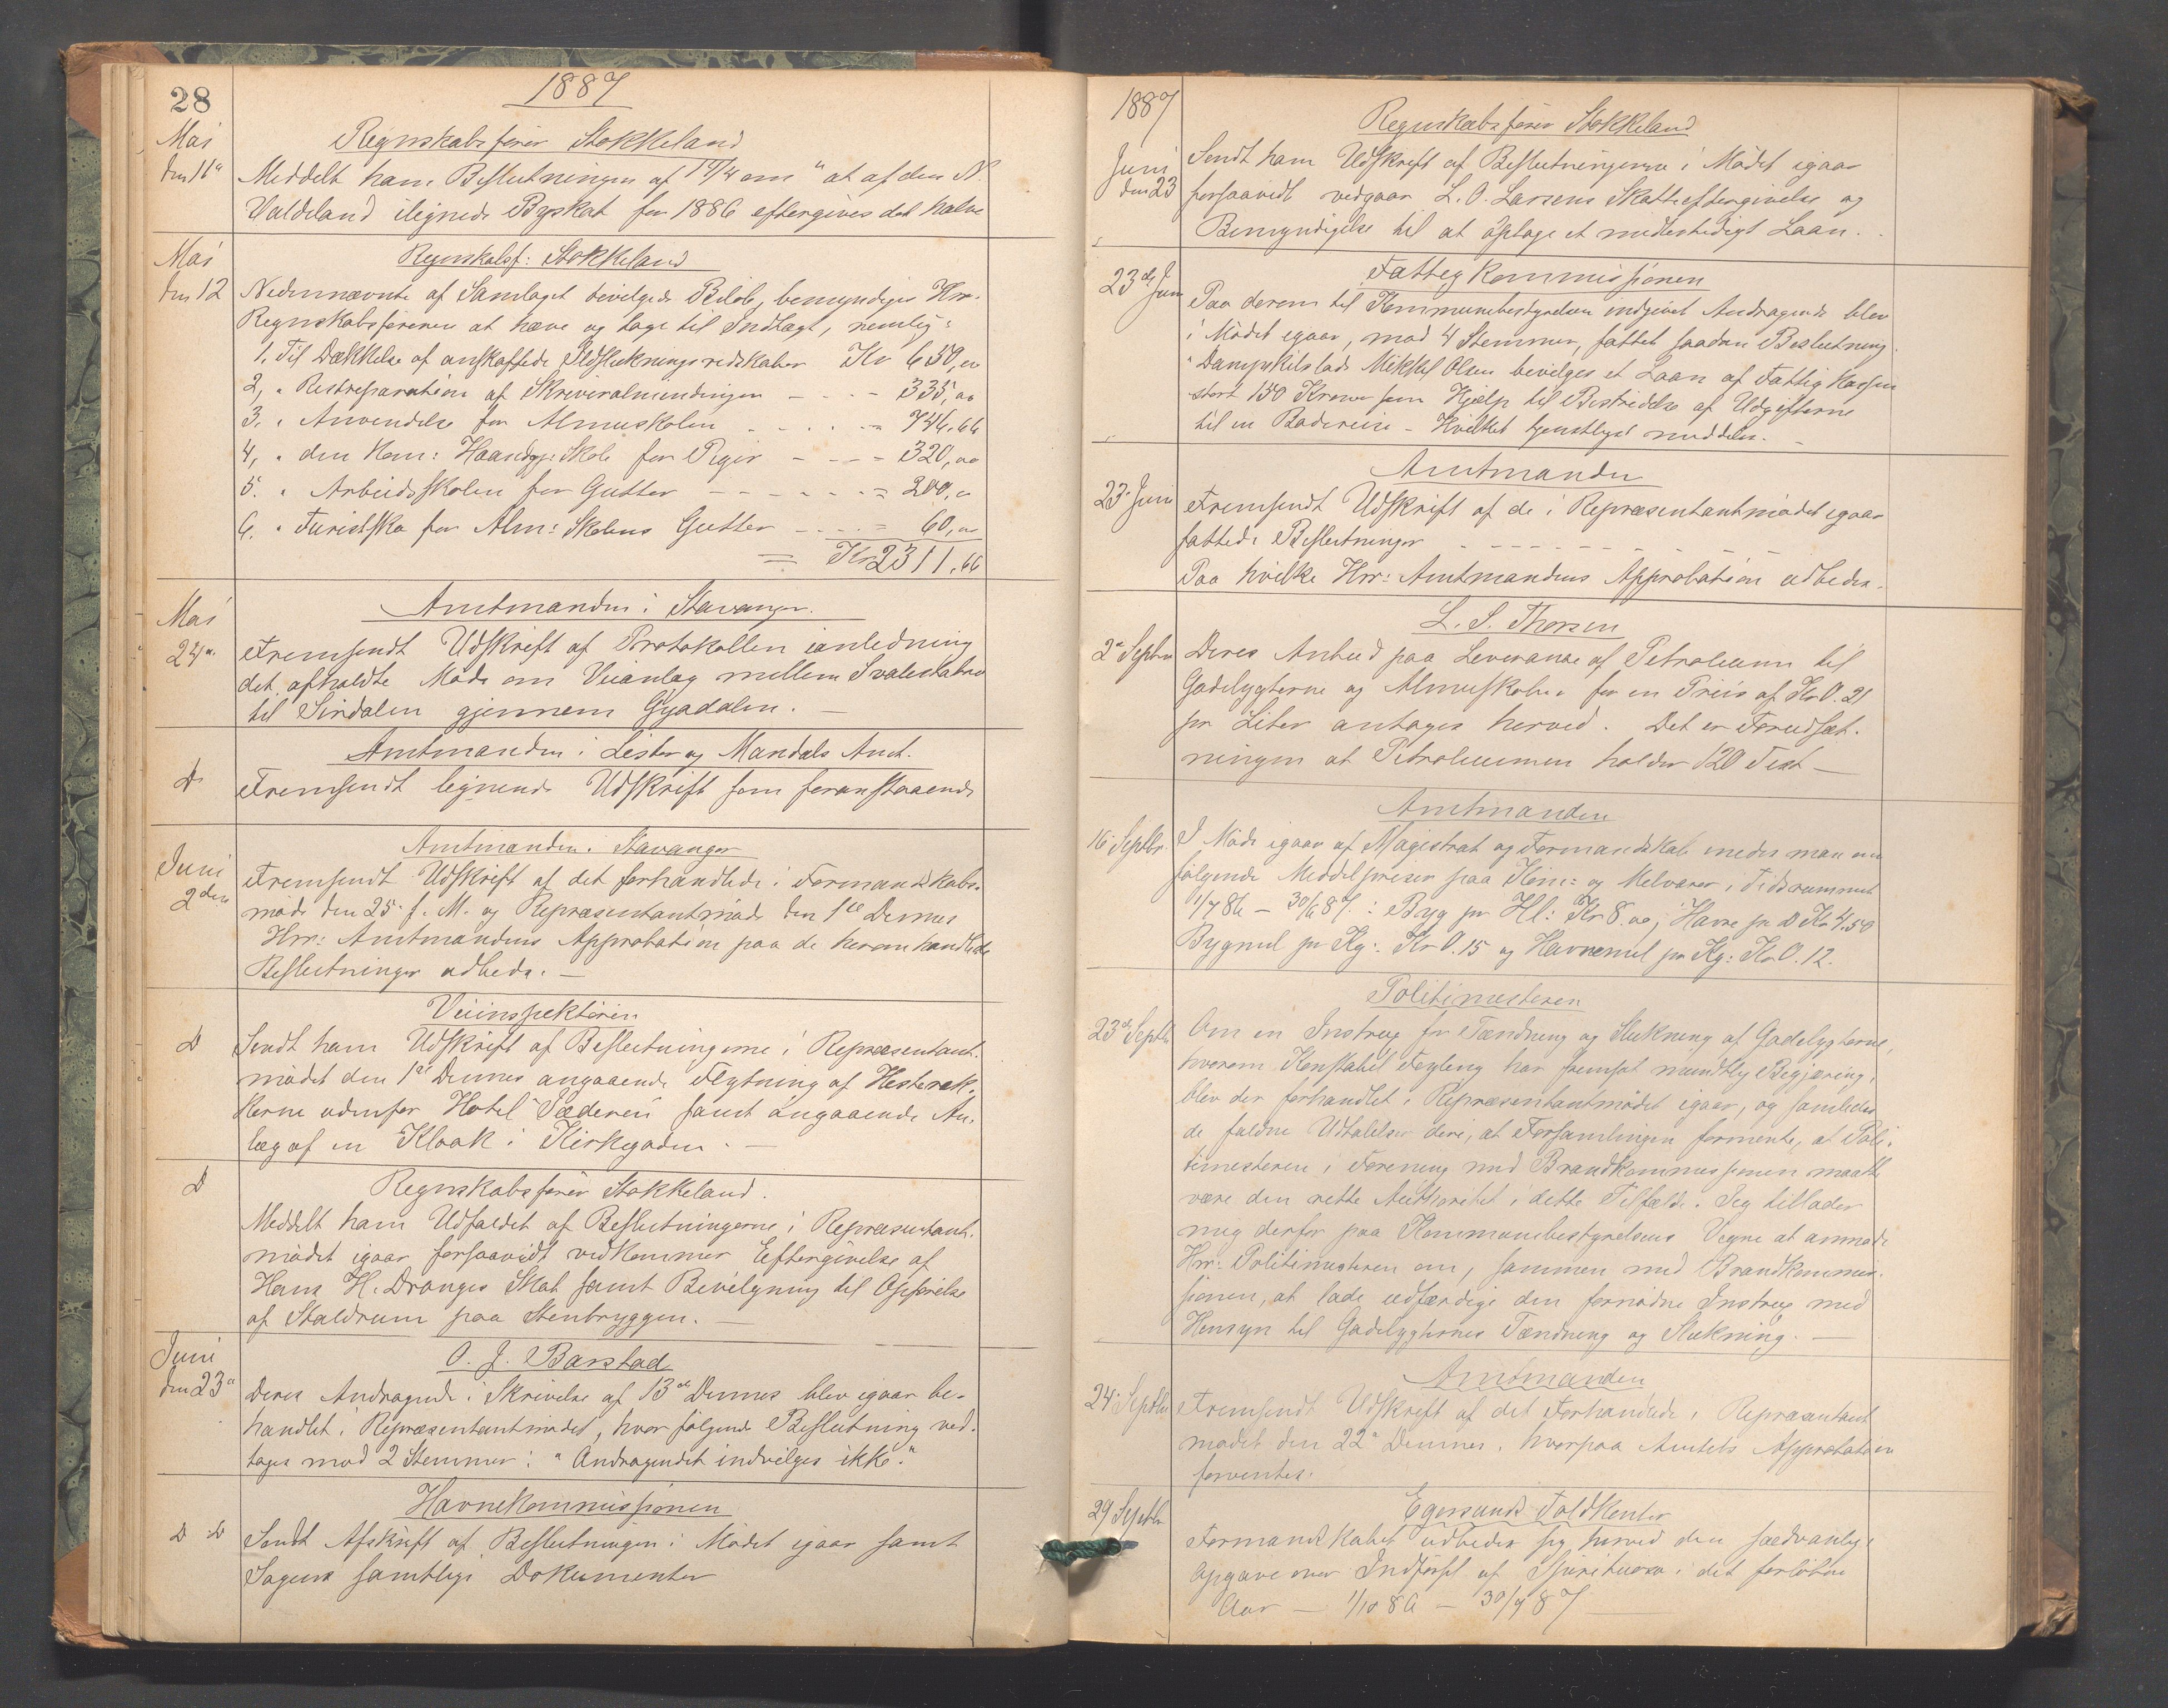 28
1887
Mai
den 11te
Regnskabsfører Stokkeland
Meddelt ham Beslutningen af 14/4 om "at af den N.
Valdeland ilignede Byskat for 1886 eftergives det halve
Mai
den 12
Regnskabsf: Stokkeland
Nedennævnte af Samlaget bevilgede Beløb, bemyndiges Hrr.
Regnskabsføreren at hæve og tage til Indtægt, nemlig:
1. Til Dækkelse af anskaffede Ildslukningsredskaber Kr 650,oo
2, " Restreparation af Skriveralmindingen - - - - 335,oo
3. " Anvendelse for Almuskolen - - - - = 746.66
4, " den kom: Haandgj: Skole for Piger - - - = 320,oo
5. " Arbeidsskolen for Gutter - - - - - = 200,o
6. " Turistsko for Alm: Skolens Gutter - - - = 60,oo
= Kr 2311.66
Mai
24de
Amtmanden i Stavanger.
Fremsendt Udskrift af Protokollen ianledning
det afholdte Møde om Veianlæg mellem Svalestad
til Sirdalen gjennem Gyadalen. —
Amtmanden i Lister og Mandals Amt.
D
Fremsendt lignende Udskrift som foranstaaende
Juni
2den
Amtmanden i Stavanger
Fremsendt Udskrift af det forhandlede i Formandskabs-
møde den 25. f. M. og Repræsentantmøde den 1ste Dennes
Hrr: Amtmandens Approbation paa de herom handlede
Beslutninger udbedes. —
D
Veiinspektøren
Sendt ham Udskrift af Beslutningerne i Repræsentant-
mødet den 1ste Dennes angaaende Flytning af Hesteræk-
kerne udenfor Hotel "Jæderen" samt angaaende An-
læg af en Kloak i Kirkegaden. —
D
Regnskabsfører Stokkeland.
Meddelt ham Udfaldet af Beslutningerne i Repræsentant-
mødet igaar forsaavidt vedkommer Eftergivelse af
Hans H. Dranges Skat samt Bevilgning til Opførelse
af Staldrum paa Stenbryggen. —
Juni
den 23de
O. J. Barstad
Deres Andragende i Skrivelse af 13de Dennes blev igaar be-
handlet i Repræsentantmødet, hvor følgende Beslutning ved-
toges mod 2 Stemmer: "Andragendet indvilges ikke."
D D
Havnekommissionen
Sendt Afskrift af Beslutningen i Mødet igaar samt
Sagens samtlige Dokumenter
1887
Juni
den 23
Regnskabsfører Stokkeland
Sendt ham Udskrift af Beslutningerne i Mødet igaar
forsaavidt vedgaar L. O. Larsens Skatteeftergivelse og
Bemyndigelse til at optage et midlertidigt Laan.
23de Juni
Fattigkommissionen
Paa derom til Kommunebestyrelsen indgivet Andragende blev
i Mødet igaar, mod 4 Stemmer, fattet saadan Beslutning.
"Dampskibslods Mikkel Olsen bevilges et Laan af Fattigkassen
stort 150 Kroner som Hjælp til Bestridelse af Udgifterne
til en Badereise - Hvilket tjenstligst meddeles. —
23. Juni
Amtmanden
Fremsendt Udskrift af de i Repræsentantmødet igaar
fattede Beslutninger - - - - - - - -
Paa hvilke Hrr: Amtmandens Approbation udbedes.
2de Septbr
L. S. Thorsen
Deres Anbud paa Leverance af Petroleum til
Gadelygterne og Almuskolen for en Priis af Kr 0.21
pr Liter antages herved. Det er Forudsæt-
ningen at Petroleummen holder 120 Test —
16. Septbr.
Amtmanden
I Møde igaar af Magistrat og Formandskab enedes man om
følgende Middelpriser paa Korn- og Melvarer i Tidsrummet
1/7 86 – 30/6 87: Byg pr Hl: Kr 8.oo, Havre pr D Kr 4.50
Bygmel pr Kg: Kr 0.15 og Havremel pr Kg: Kr 0.12.
23de Septbr
Politimesteren
Om en Instrux for Tændning og Slukning af Gadelygterne,
hvorom Konstabel Fogling har fremsat mundtlig Begjæring,
blev der forhandlet i Repræsentantmødet igaar, og samledes
de faldne Udtalelser deri, at Forsamlingen formente, at Poli-
timesteren i Forening med Brandkommissionen maatte
være den rette Autoritet i dette Tilfælde. Jeg tillader
mig derfor paa Kommunebestyrelsens Vegne at anmode
Hrr: Politimesteren om, sammen med Brandkommis-
sionen, at lade udfærdige den fornødne Instrux med
Hensyn til Gadelygternes Tændning og Slukning. —
24. Septbr
Amtmanden
Fremsendt Udskrift af det Forhandlede i Repræsentant
mødet den 22de Dennes, hvorpaa Amtets Approbation
forventes.
29 Septbr
Egersunds Toldkontor
Formandskabet udbeder sig herved den sædvanlige
Opgave over Indførsel af Spirituosa i det forløbne
Aar — 1/10 86 — 30/9 87